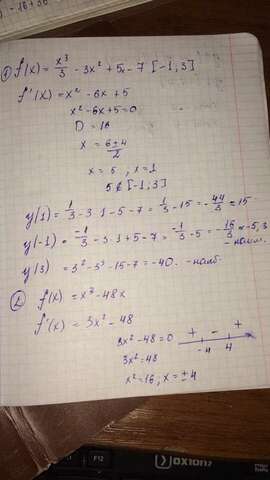 ① f(x) = x³/3 - 3x² + 5x - 7 [-1, 3]
f'(x) = x² - 6x + 5
x² - 6x + 5 = 0
D = 16
x = (6 ± 4)/2
x = 5 , x = 1
5 ∉ [-1, 3]
y(1) = 1/3 - 3·1 - 5 - 7 = 1/3 - 15 = -44/3 = 15
y(-1) = -1/3 - 3·1 + 5 - 7 = -1/3 - 5 = -16/3 = -5,3
- наим.
y(3) = 3² - 3³ - 15 - 7 = -40. - наиб.
② f(x) = x³ - 48x
f'(x) = 3x² - 48
3x² - 48 = 0 + - +
3x² = 48 -4 4
x² = 16 , x = ±4
F12
DEXP